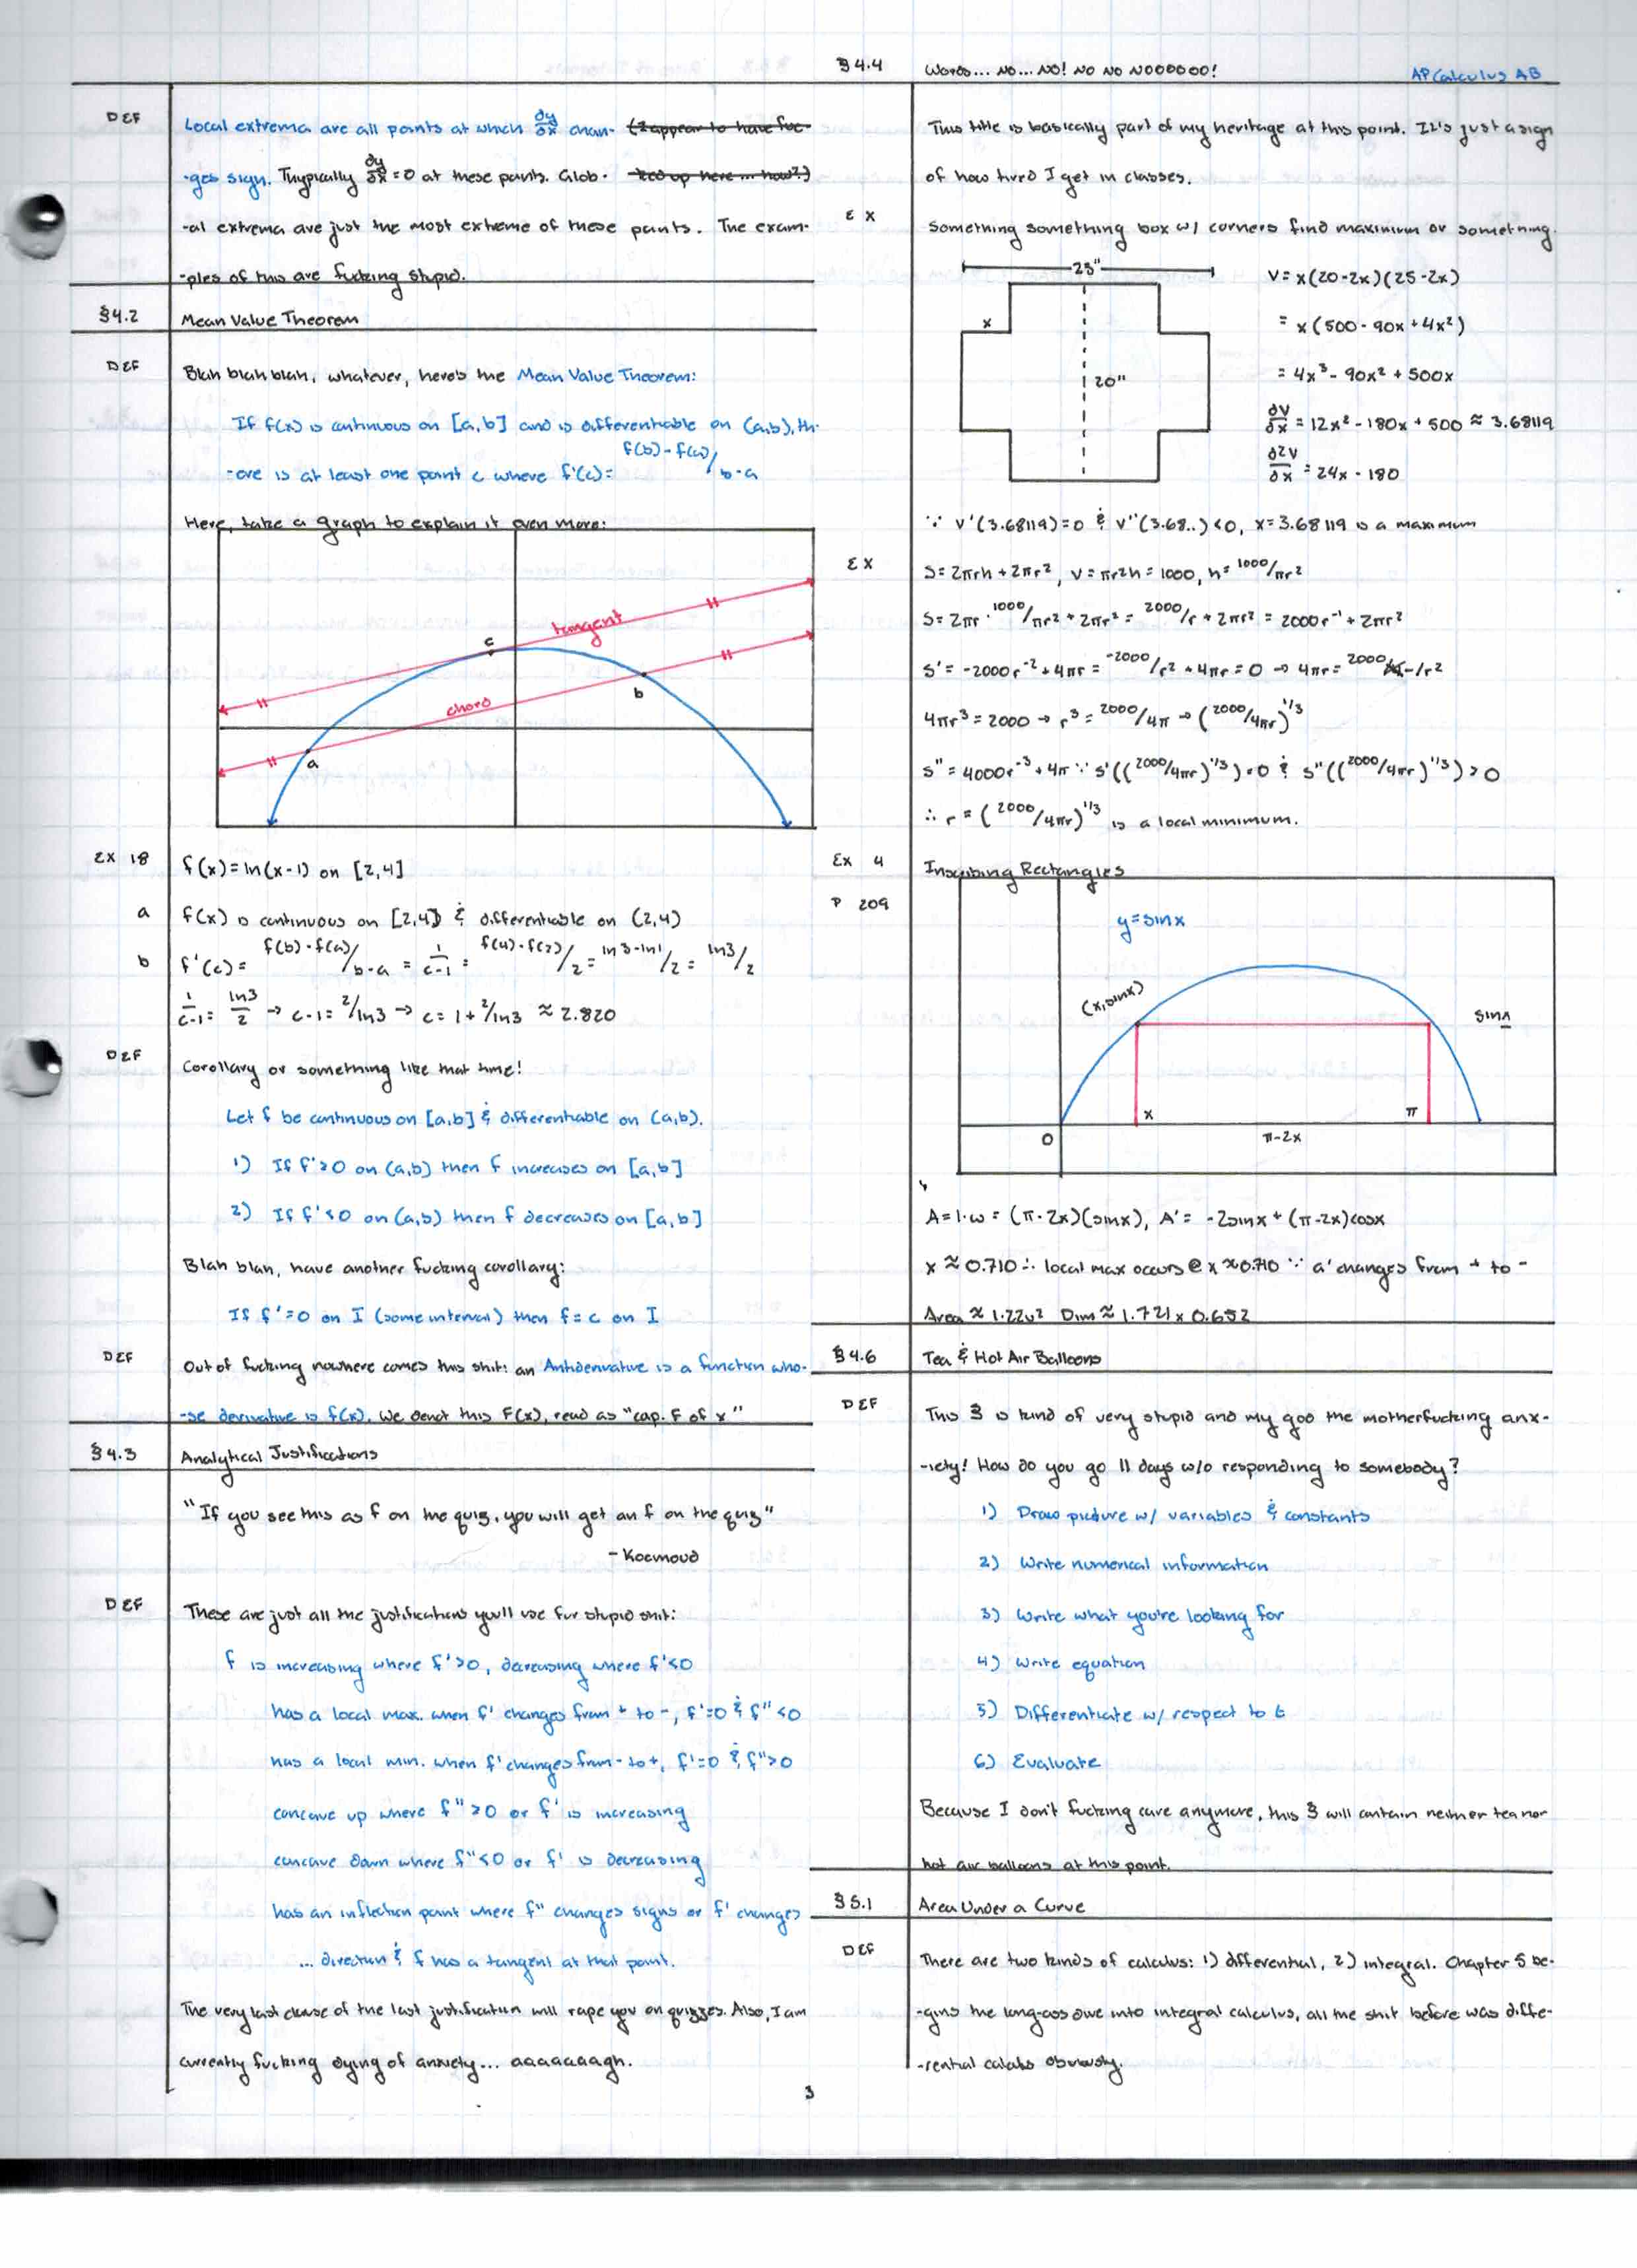 DEF Local extrema are all points at which ∂y/∂x chan- (I appear to have fuc-
-ges sign. Thypically ∂y/∂x = 0 at these points. Glob- -ked up here ... how?)
-al extrema are just the most extreme of these points. The exam-
-ples of this are fucking stupid.
§4.2 Mean Value Theorem
DEF Blah blah blah, whatever, here's the Mean Value Theorem:
If f(x) is continuous on [a,b] and is differentiable on (a,b), th-
-ere is at least one point c where f'(c)= f(b)-f(a)/b-a
Here, take a graph to explain it even more:
tangent
c
chord
b
a
Ex 18 f(x)=ln(x-1) on [2,4]
a f(x) is continuous on [2,4] & differentiable on (2,4)
b f'(c)= f(b)-f(a)/b-a = 1/c-1 = f(4)-f(2)/2 = ln3-ln1/2 = ln3/2
1/c-1 = ln3/2 → c-1= 2/ln3 → c= 1+2/ln3 ≈ 2.820
DEF Corollary or something like that time!
Let f be continuous on [a,b] & differentiable on (a,b).
1) If f'>0 on (a,b) then f increases on [a,b]
2) If f'<0 on (a,b) then f decreases on [a,b]
Blah blah, have another fucking corollary:
If f'=0 on I (some interval) then f=c on I
DEF Out of fucking nowhere comes this shit: an Antiderivative is a function who-
-se derivative is f(x). We denot this F(x), read as "cap. F of x"
§4.3 Analytical Justifications
"If you see this as f on the quiz, you will get an f on the quiz"
- Koemoud
DEF These are just all the justifications you'll use for stupid shit:
f is increasing where f'>0, decreasing where f'<0
has a local max. when f' changes from + to -, f'=0 & f''<0
has a local min. when f' changes from - to +, f'=0 & f''>0
concave up where f''>0 or f' is increasing
concave down where f''<0 or f' is decreasing
has an inflection point where f'' changes signs or f' changes
... direction & f has a tangent at that point.
The very last clause of the last justification will rape you on quizzes. Also, I am
currently fucking dying of anxiety... aaaaaaaagh.
§4.4 Words... NO... NO! NO NO NOOOOOO! AP Calculus AB
This title is basically part of my heritage at this point. It's just a sign
of how tired I get in classes.
EX Something something box w/ corners find maximum or something.
25"
x
20"
V= x(20-2x)(25-2x)
= x(500-90x+4x²)
= 4x³-90x²+500x
∂V/∂x = 12x²-180x+500 ≈ 3.68119
∂2V/∂x = 24x-180
∵ V'(3.68119)=0 & V''(3.68..)<0, x=3.68119 is a maximum
EX S=2πrh+2πr², V=πr²h=1000, h=1000/πr²
S=2πr·1000/πr²+2πr²= 2000/r+2πr² = 2000r⁻¹+2πr²
S'= -2000r⁻²+4πr = -2000/r²+4πr=0 → 4πr= 2000/r²
4πr³=2000 → r³= 2000/4π → (2000/4πr)^1/3
S''= 4000r⁻³+4π ∵ S'((2000/4πr)^1/3)=0 & S''((2000/4πr)^1/3)>0
∴ r = (2000/4πr)^1/3 is a local minimum.
Ex 4 Inscribing Rectangles
P 209
y=sinx
(x,sinx)
sin
x
π
0
π-2x
A=l·w= (π-2x)(sinx), A'= -2sinx+(π-2x)cosx
x≈0.710 ∴ local max occurs @ x≈0.710 ∵ a' changes from + to -
Area ≈ 1.22u² Dim ≈ 1.721 x 0.652
§4.6 Tea & Hot Air Balloons
DEF This § is kind of very stupid and my god the motherfucking anx-
-iety! How do you go 11 days w/o responding to somebody?
1) Draw picture w/ variables & constants
2) Write numerical information
3) Write what you're looking for
4) Write equation
5) Differentiate w/ respect to t
6) Evaluate
Because I don't fucking care anymore, this § will contain neither tea nor
hot air balloons at this point.
§5.1 Area Under a Curve
DEF There are two kinds of calculus: 1) differential, 2) integral. Chapter 5 be-
-gins the long-ass dive into integral calculus, all the shit before was diffe-
-rential calculus obviously.
3